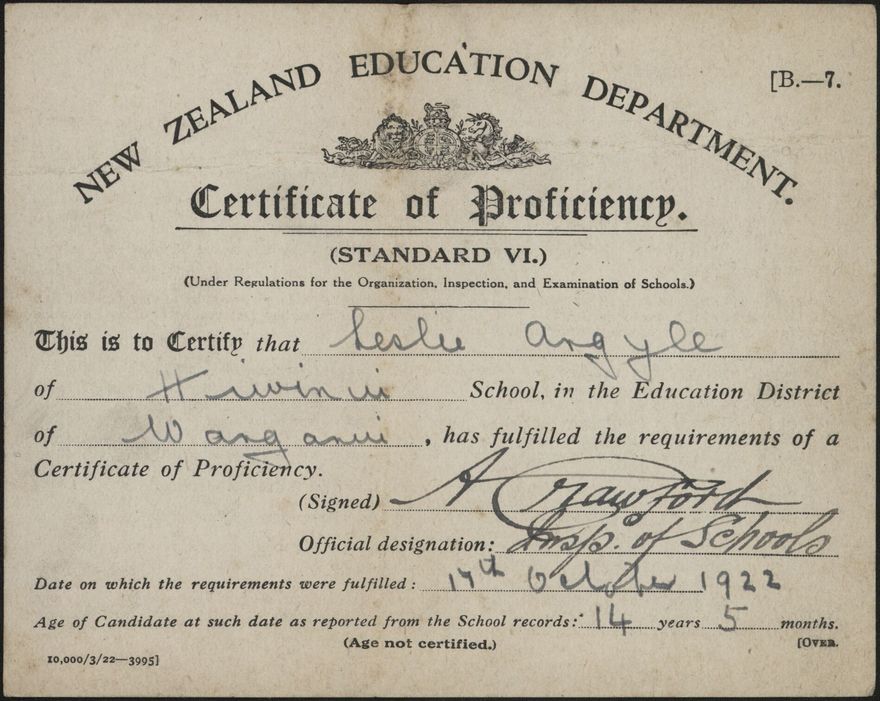 [B.—7.
NEW ZEALAND EDUCATION DEPARTMENT.
Certificate of Proficiency.
(STANDARD VI.)
(Under Regulations for the Organization, Inspection, and Examination of Schools.)
This is to Certify that Leslie Argyle
of Hiwinui School, in the Education District
of Wanganui, has fulfilled the requirements of a
Certificate of Proficiency.
(Signed) A Crawford
Official designation: Insp. of Schools
Date on which the requirements were fulfilled: 17th October 1922
Age of Candidate at such date as reported from the School records: 14 years 5 months.
(Age not certified.)
[OVER.
10,000/3/22—3995]